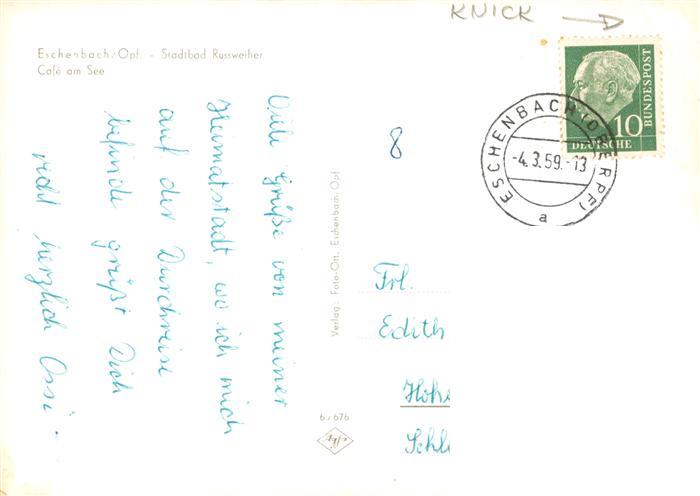 KNICK
Eschenbach/Opf. - Stadtbad Russweiher
Café am See
Viele Grüße von meiner
Heimatstadt, wo ich mich
auf der Durchreise
befinde grüßt Dich
recht herzlich Ossi.
8
DEUTSCHE
BUNDESPOST
10
ESCHENBACH (OBERPF)
-4.3.59.-13
a
Verlag: Foto-Ott, Eschenbach Opf.
6/676
Frl.
Edith
Hohe
Schl